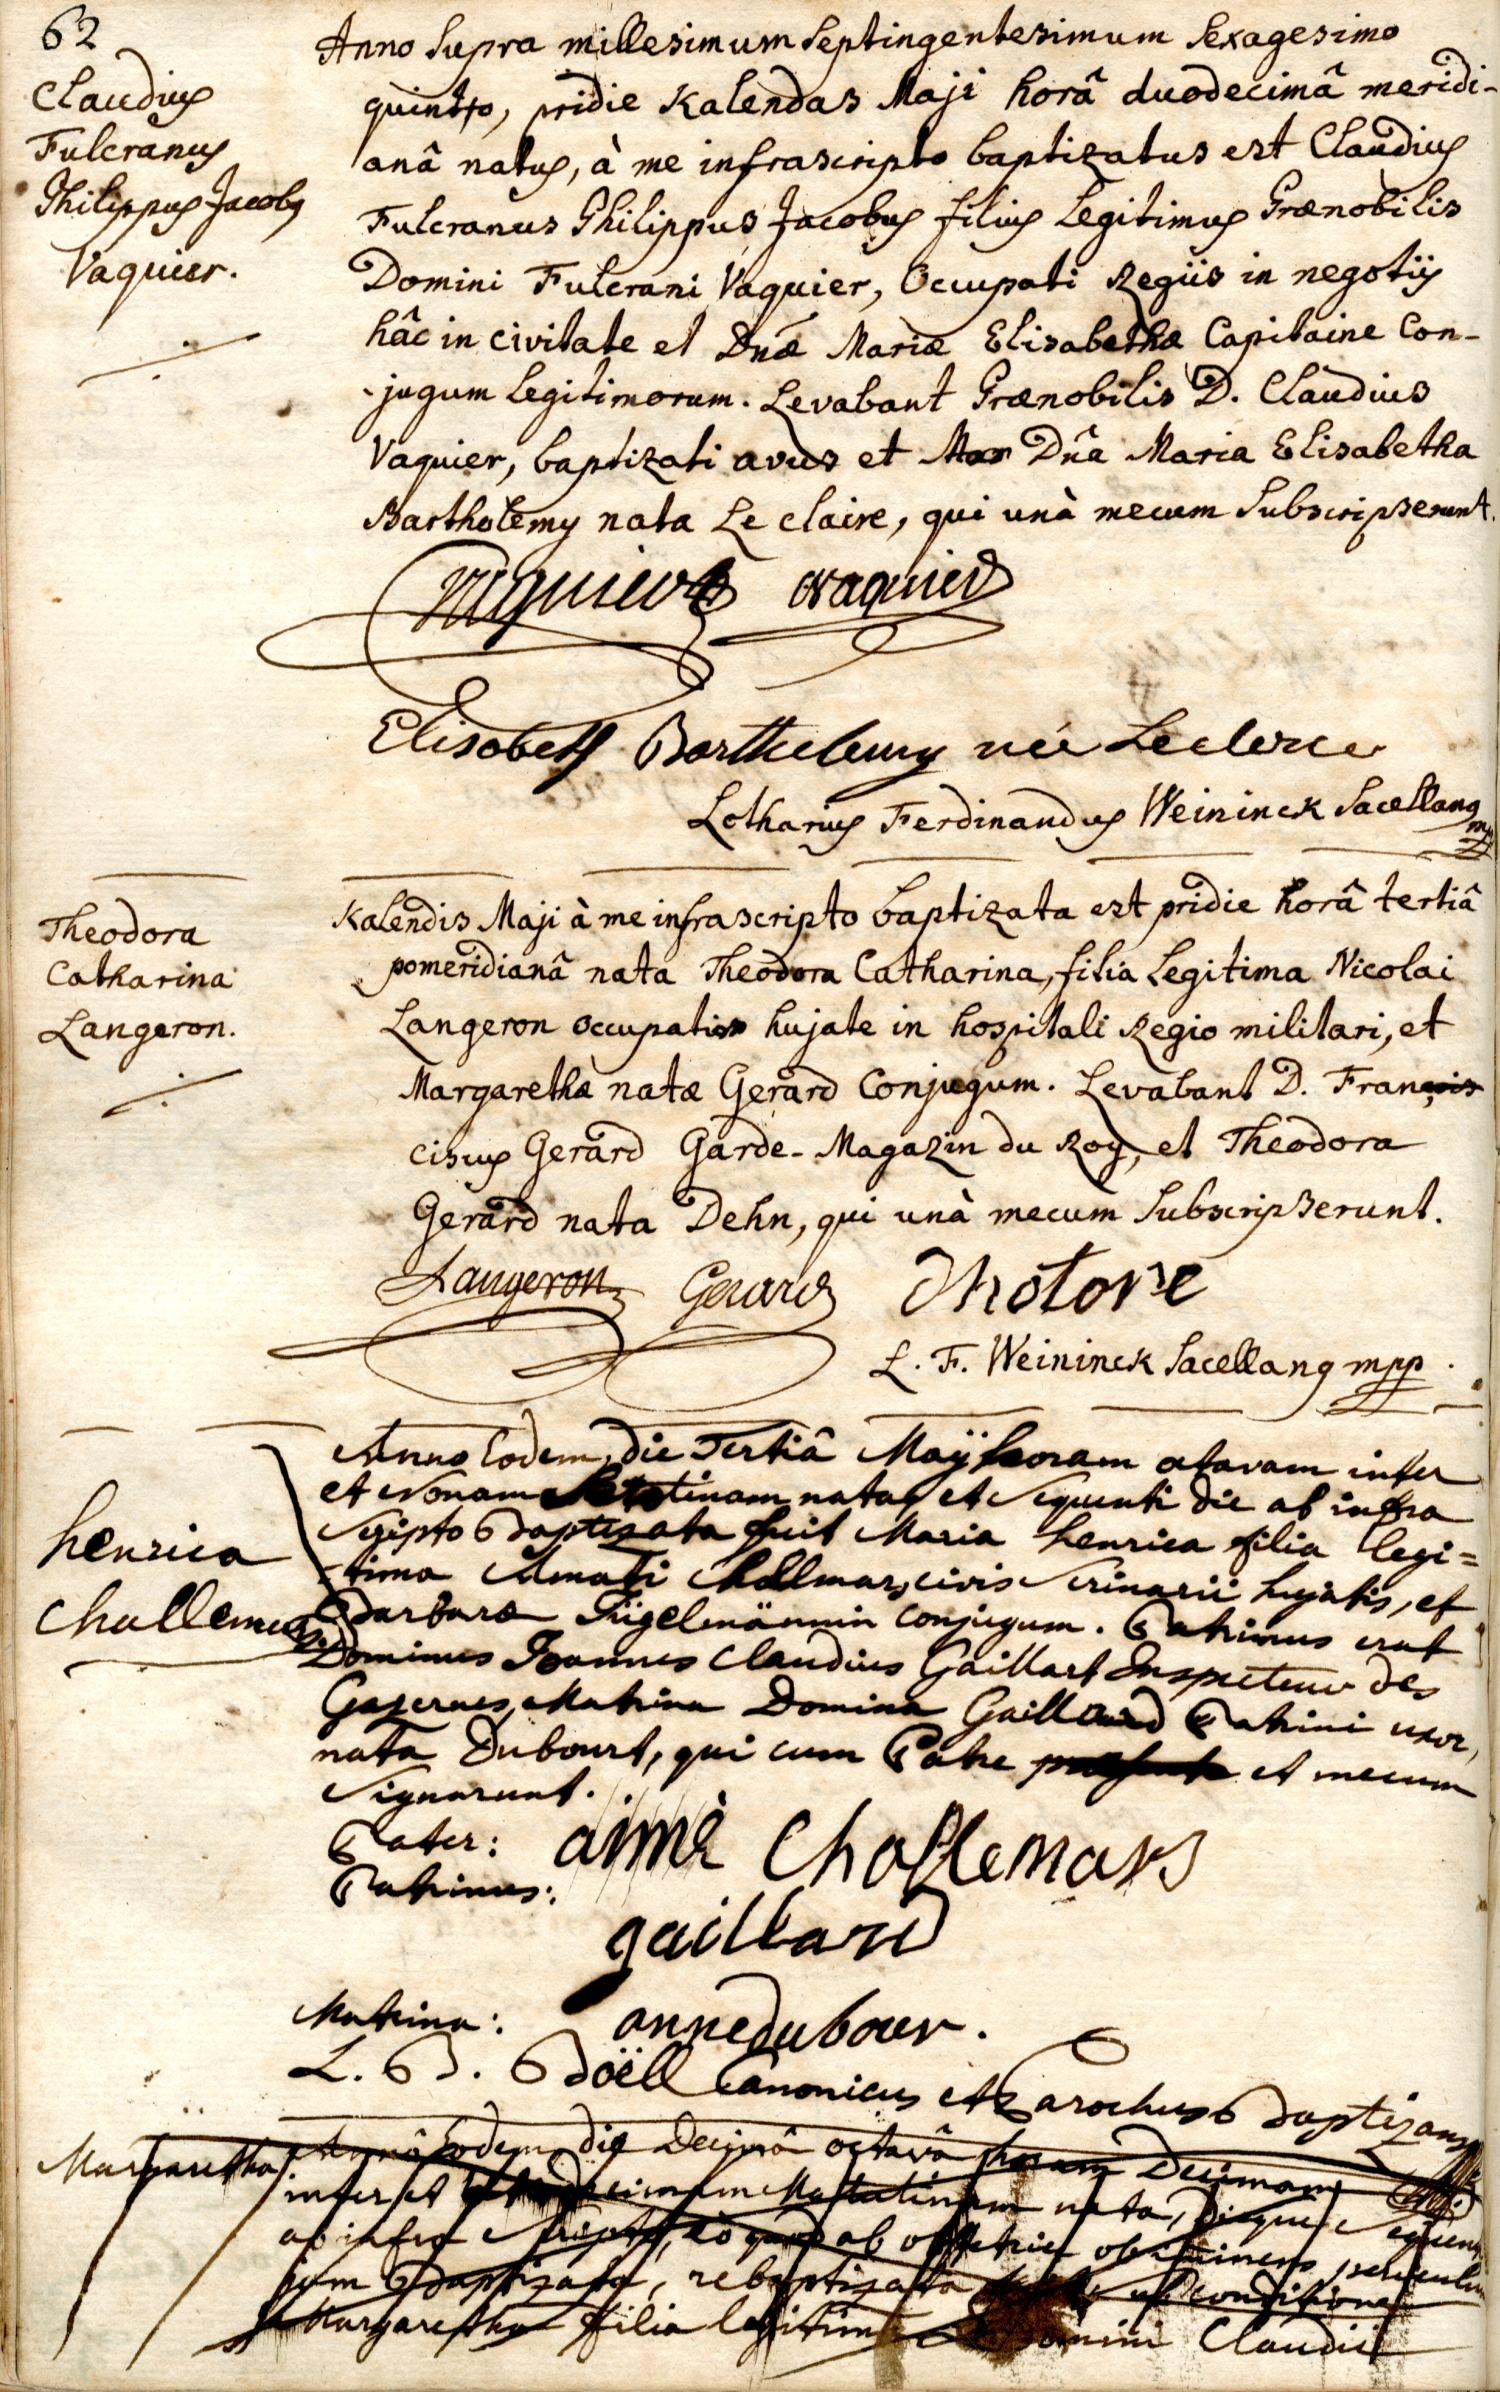 62
Claudius
Fulcranus
Philippus Jacobus
Vaquier.
Anno supra millesimum septingentesimum sexagesimo
quinto, pridie Kalendas Maji horâ duodecimâ meridi-
anâ natus, à me infrascripto baptizatus est Claudius
Fulcranus Philippus Jacobus filius legitimus Prænobilis
Domini Fulcrani Vaquier, Occupati Regiis in negotiis
hâc in civitate et Dnæ Mariæ Elisabethæ Capitaine Con-
-jugum legitimorum. Levabant Prænobilis D. Claudius
Vaquier, baptizati avus et Dna Maria Elisabetha
Bartholemy nata Le Claire, qui unà mecum subscripserunt.
Vaquier Vaquier
Elisabeth Barthelemy née Leclerce
Lotharius Ferdinandus Weininck Sacellanus mpp
Theodora
Catharina
Langeron.
Kalendis Maji à me infrascripto baptizata est pridie horâ tertiâ
pomeridianâ nata Theodora Catharina, filia legitima Nicolai
Langeron occupati hujate in hospitali Regio militari, et
Margarethæ natæ Gerard Conjugum. Levabant D. Fran
ciscus Gerard Garde-Magazin du Roy, et Theodora
Gerard nata Dehn, qui unà mecum subscripserunt.
Langeron Gerard Thotore
L. F. Weininck Sacellanus mpp.
henrica
Challemars.
Anno Eodem, die Tertiâ Maÿ horam octavam inter
et nonam matutinam nata, et sequenti die ab infra
scripto Baptizata fuit Maria henrica filia legi=
-tima Amati Challmars, civis scrinarii hujatis, et
Barbaræ Tügelmännin conjugum. Patrinus erat
Dominus Joannes Claudius Gaillart Inspecteur des
Cazernes, Matrina Domina Gaillard Patrini uxor,
nata Dubourt, qui cum Patre et mecum
signarunt.
Pater: aimè Challemars
Patrinus:
gaillard
Matrina: anne dubour.
L. B. Boëll Canonicus et Parochus Baptizans
Margaretha
Annô Eodem, die Decimâ octavâ horam Decimam
inter et decimam Matutinam nata, dieque sequenti
ab infra scripto, eò quod ab obstetrice ob imminens periculum
jam Baptizata, rebaptizata sub conditione
Margaretha filia legitima Domini Claudii